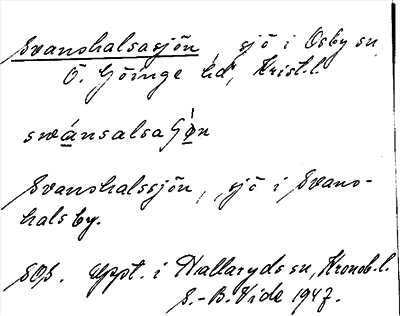 Svanshalsasjön, sjö i Osby sn
Ö. Göinge hd, Krist.l.
swánsalsa
Svanshalssjön, sjö i Svans-
halsby.
Uppt. i Hallaryds sn, Kronob.l.
S.-B. Vide 1947.